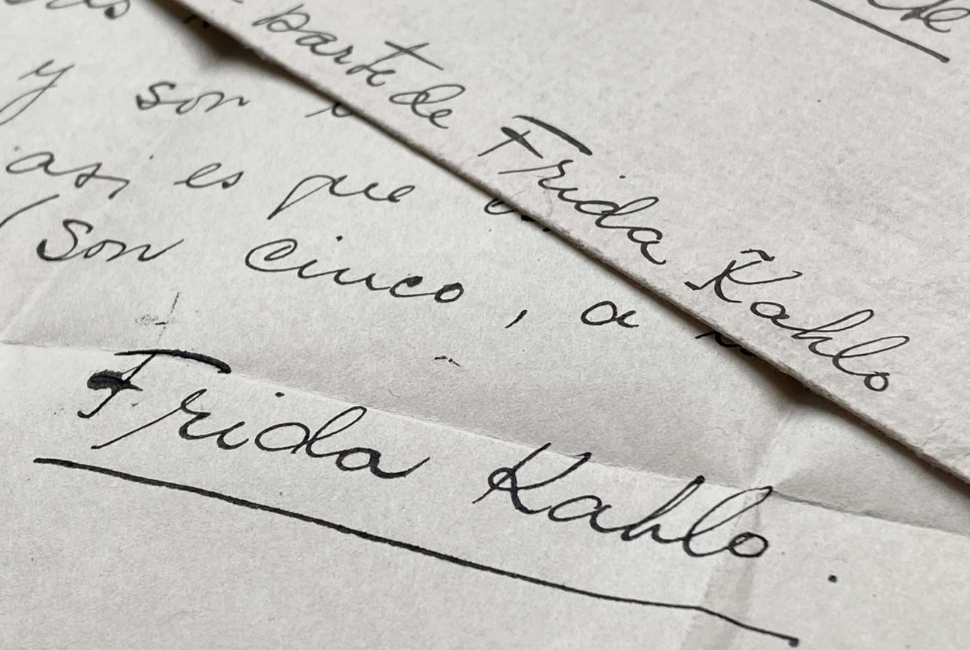 parte de Frida Kahlo
y son
asi es que
(son cinco, a
Frida Kahlo.